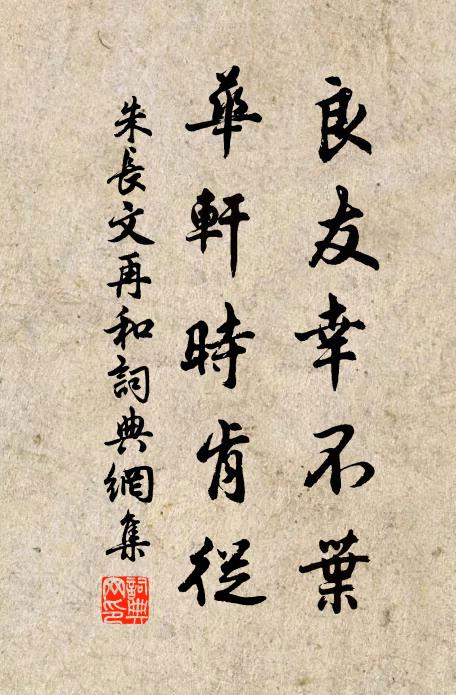 良友幸不葉
華軒時肯從
朱長文再和詞典網集
詞典網印